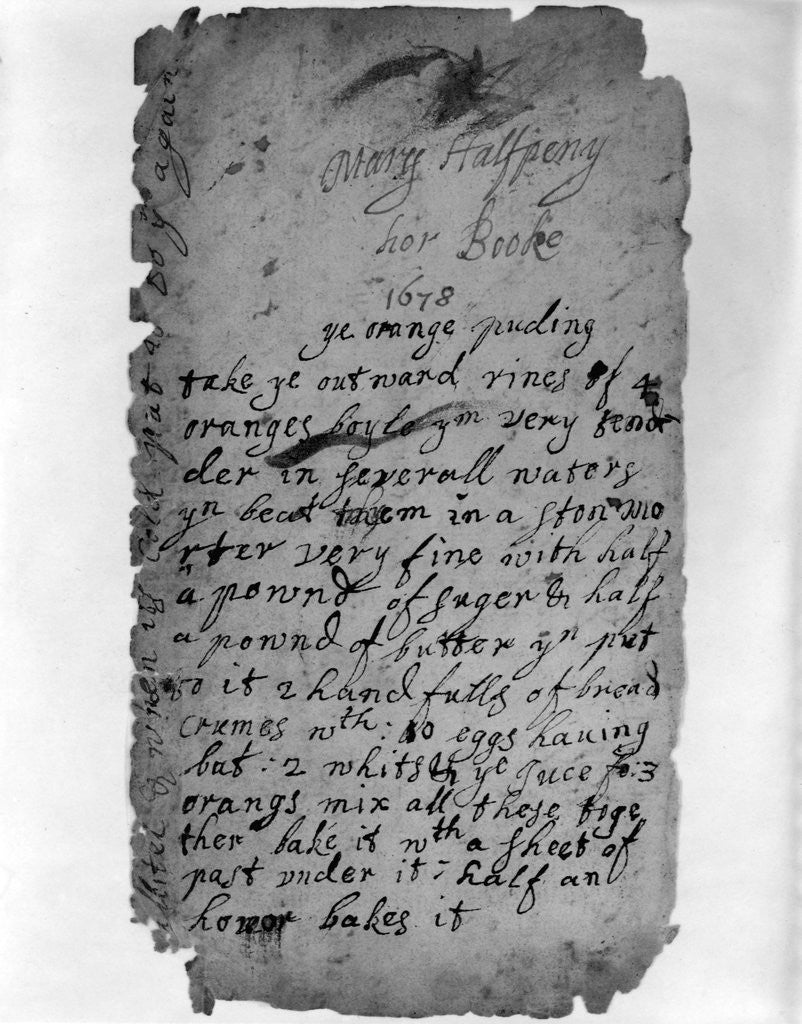 Mary Halfpeny
her Booke
1678
ye orange puding
take ye outward rines of 4
oranges boyle ym very tend
der in severall waters
yn beat them in a ston mo
rter very fine with half
a pownd of suger & half
a pownd of butter yn put
to it 2 handfulls of bread
crumes wth: 10 eggs having
but: 2 whits & ye juce fo:3
orangs mix all these toge
ther bake it wth a sheet of
past vnder it: half an
howor bakes it
when its cold put as boy again